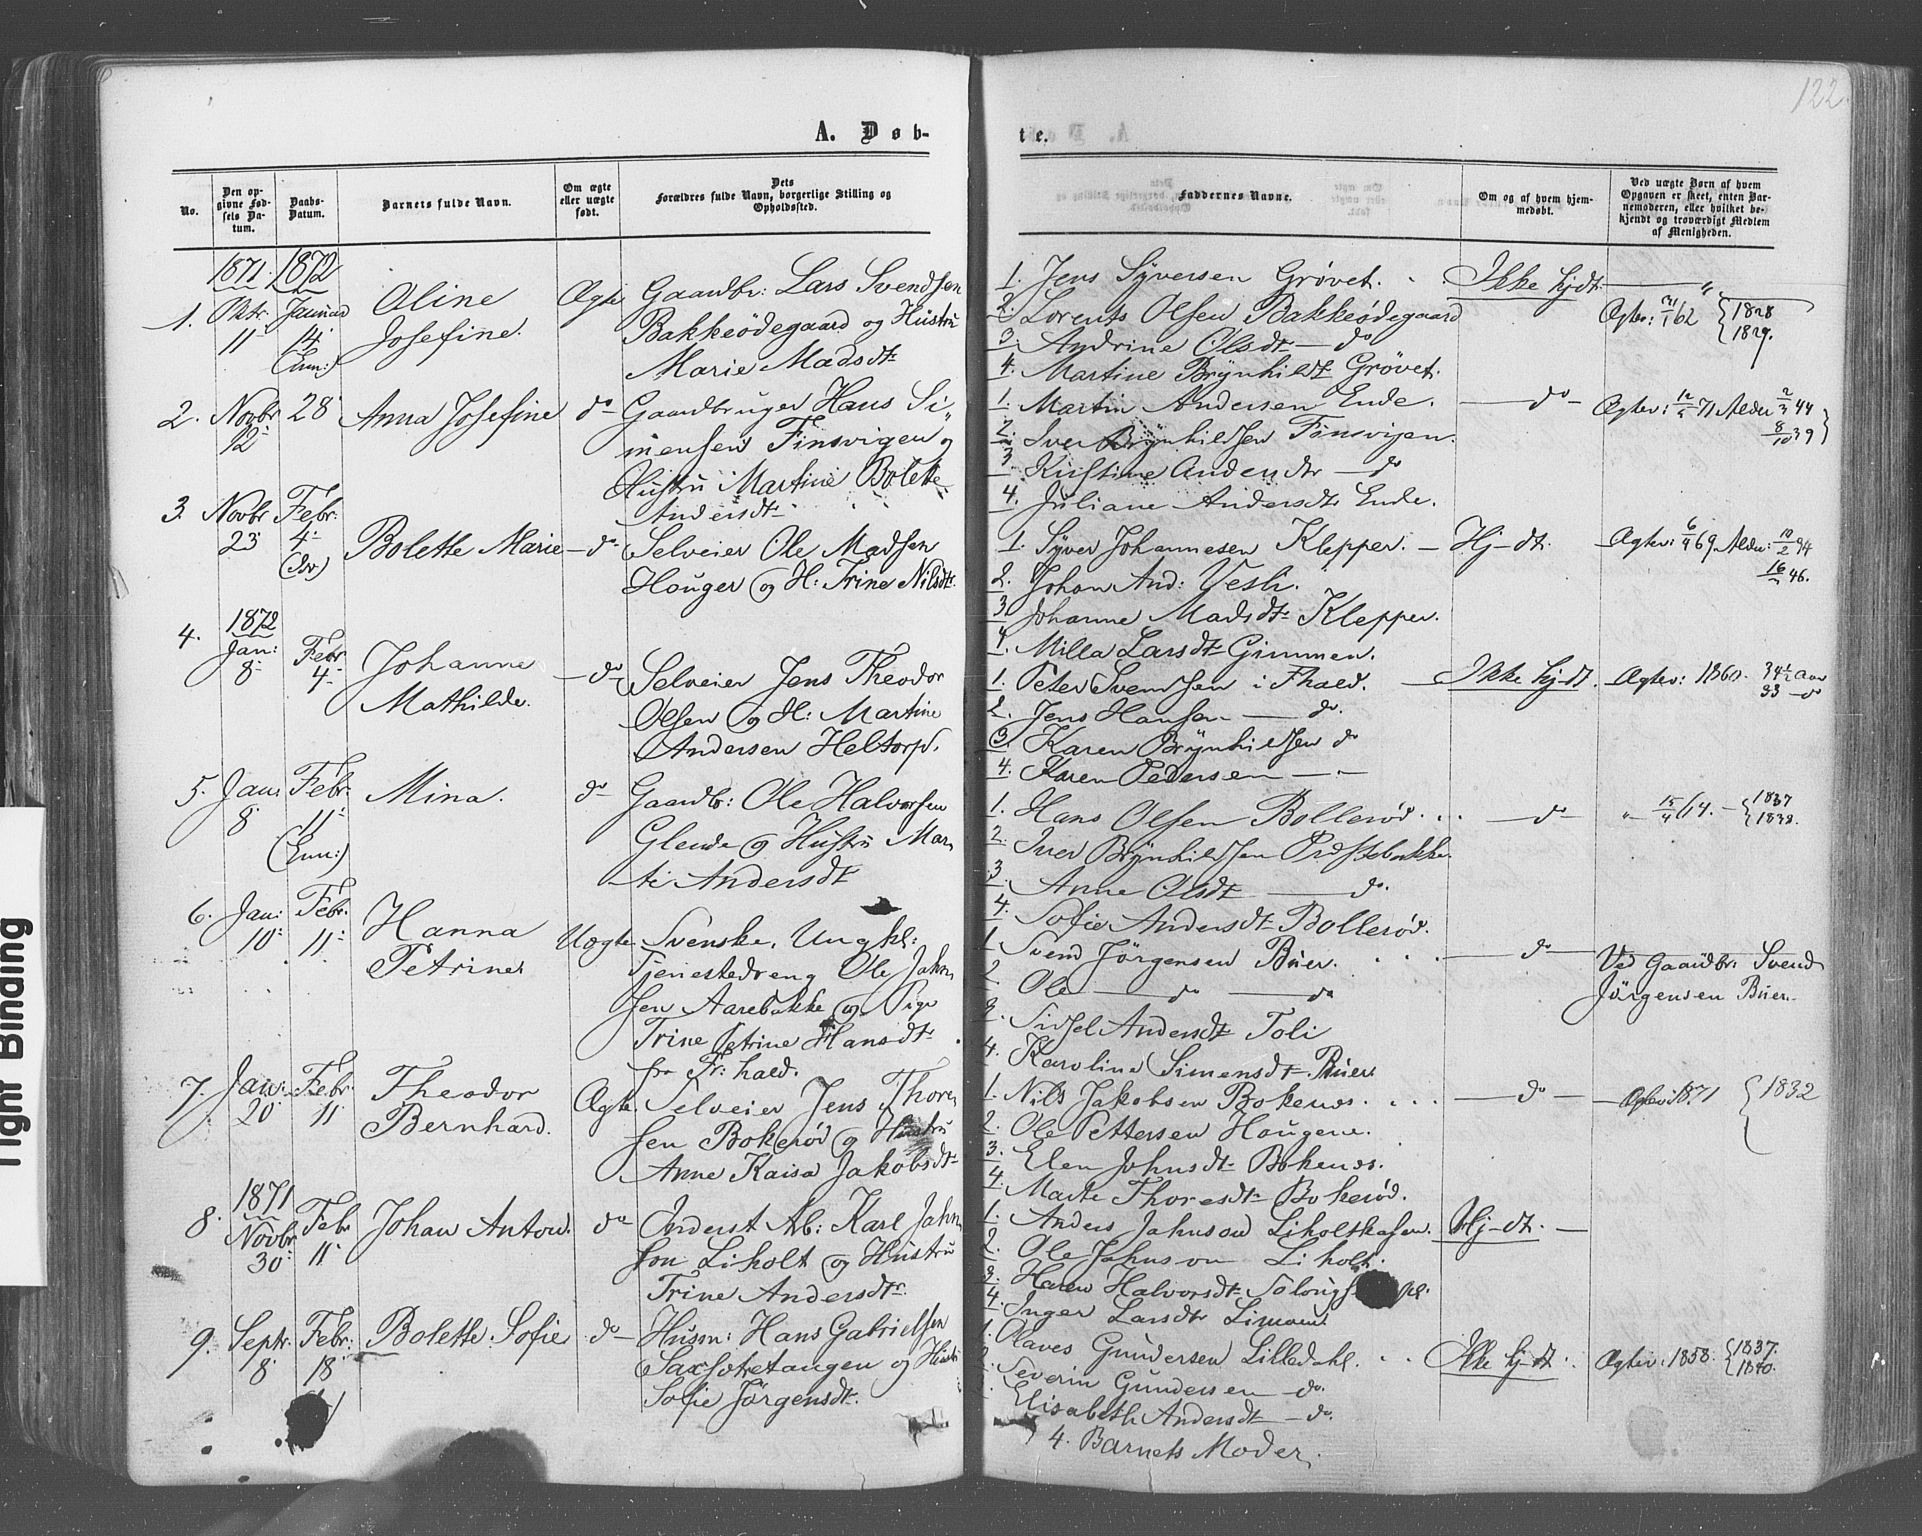 122.
A. Døb-
te.
No.
Den op-
givne Fød-
sels Da-
tum.
Daabs-
Datum.
Barnets fulde Navn.
Om ægte
eller uægte
født.
Dets
Forældres fulde Navn, borgerlige Stilling og
Opholdssted.
Faddernes Navne.
Om og af hvem hjem-
medøbt.
Ved uægte Børn af hvem
Opgaven er skeet, enten Bar-
nemoderen, eller hvilket be-
kjendt og troværdigt Medlem
af Menigheden.
1871. 1872
1. Oktr. 11 Januar 14 Oline Josefine. Ægte
Gaardbr: Lars Svendsen
Bakkeødegaard og Hustru
Marie Madsdtr
1. Jens Syversen Grøvet.
2. Lorents Olsen Bakkeødegaard
3. Andrine Olsdtr — do
4. Martine Brynhildt Grøvet.
Ikke hjdt.
Ægtev: 62 {1828
1829.
2. Novbr 12 28 Anna Josefine do
Gaardbruger Hans Si-
mensen Finsvigen og
Hustru Martine Bolette
Andersdtr
1. Martin Andersen Ende.
2. Iver Brynhildsen Finsvigen.
3. Kristine Andersdtr — do
4. Juliane Andersdtr Ende.
— do —
Ægtev: 71 Alder 2/3 44
8/10 39
3. Novbr 23 Febr: 4 Bolette Marie — do
Selveier Ole Madsen
Houger og H: Trine Nilsdtr.
1. Syver Johannesen Klepper.
2. Johan And: Vestr.
3. Johanne Madsdtr Klepper.
4. Milla Larsdtr Gimmen.
Hj-dt.
Ægtev: 69 Alder: 10/2 44
46.
1872
4. Jan: 8 Febr 4 Johanne Mathilde. — do
Selveier Jens Theodor
Olsen og H: Martine
Andersen Heltorp.
1. Peter Svendsen i Fhald.
2. Jens Hansen — do.
3. Karen Brynhildsen do
4. Karen Pedersen — "
Ikke hj-dt.
Ægtev: 1860. 34½ Aar
33 — do
5. Jan: 8 Febr. 11 Mina. do
Gaardbr: Ole Halvorsen
Glende og Hustru Mar-
te Andersdt
1. Hans Olsen Bollerød.
2. Iver Brynhildsen Præstebakke.
3. Anne Olsdt — do.
4. Sofie Andersdtr Bollerød.
— do —
" 15/4 64. {1837
1838.
6. Jan: 10 Febr. 11 Hanna Petrine Uægte
Svenske, Ungkl:
Tjenestedreng Ole Jahn-
sen Aarebakke og Pige
Trine Petrine Hansdtr
fra Fr:hald.
1 Svend Jörgensen Buer.
2 Ole — do — do
3. Sidsel Andersdtr Toli
4. Karoline Simensdtr Buer.
— do —
Ved Gaardbr: Svend
Jörgensen Buer.
7. Jan: 20 Febr. 11 Theodor Bernhard. Ægte.
Selveier Jens Thore-
sen Bokerød og Hustru
Anne Kaisa Jakobsdtr
1. Nils Jakobsen Bokerød.
2. Ole Pettersen Hougene.
3. Elen Johnsdtr Bokerød.
4. Marte Thoresdtr Bokerød.
— do —
Ægtev: 1871 {1832
1871
8. Novbr 30 Febr 11 Johan Anton. do
Inderst Arb: Karl Jahn-
son Liholt og Hustru
Trine Andersdtr.
1. Anders Jahnson Liholt
2. Ole Jahnson Liholt.
3. Karen Halvorsdtr
4. Inger Larsdtr Liholt
Hj-dt. —
9. Septr. 8 Febr: 18 Bolette Sofie do
Husm: Hans Gabrielsen
og Hustru
Sofie Jörgensdt.
1. Olaves Gundersen Lilledahl.
Severin Gundersen — do.
Elisabeth Andersdt — do.
4. Barnets Moder.
Ikke hj-dt.
Ægtev: 1858. {1837.
1840.
Tight Binding